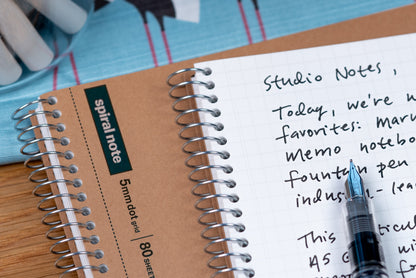 spiral note
5mm dot grid | 80 SHEETS
Studio Notes,
Today, we're
favorites: Mar
Memo notebo
fountain pen
indus - le
This
AS